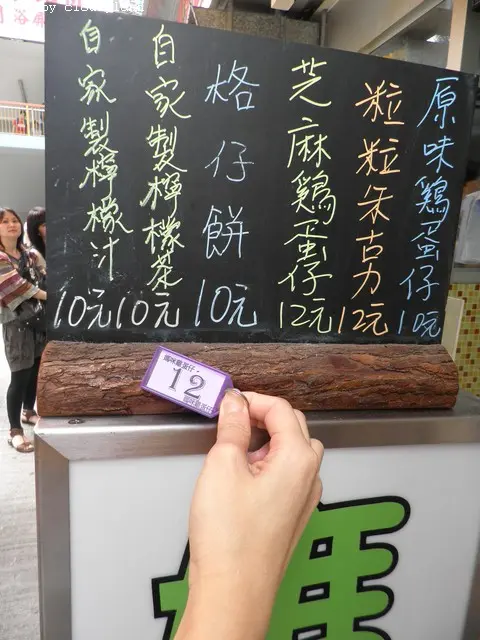 原味鷄蛋仔 10元
粒粒朱古力 12元
芝麻鷄蛋仔 12元
格仔餅 10元
自家製檸檬茶 10元
自家製檸檬汁 10元
12